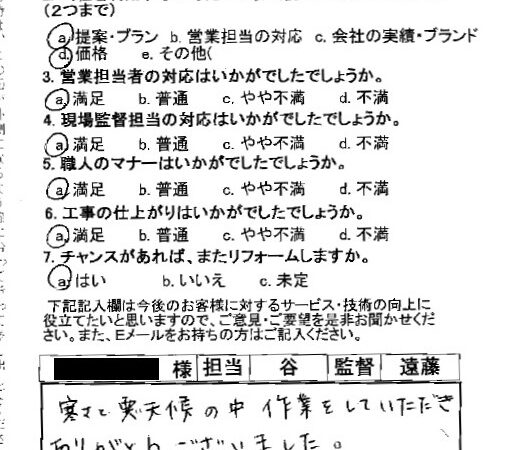 (２つまで)
a. 提案・プラン b. 営業担当の対応 c. 会社の実績・ブランド
d. 価格 e. その他(
3. 営業担当者の対応はいかがでしたでしょうか。
a. 満足 b. 普通 c. やや不満 d. 不満
4. 現場監督担当の対応はいかがでしたでしょうか。
a. 満足 b. 普通 c. やや不満 d. 不満
5. 職人のマナーはいかがでしたでしょうか。
a. 満足 b. 普通 c. やや不満 d. 不満
6. 工事の仕上がりはいかがでしたでしょうか。
a. 満足 b. 普通 c. やや不満 d. 不満
7. チャンスがあれば、またリフォームしますか。
a. はい b. いいえ c. 未定
下記記入欄は今後のお客様に対するサービス・技術の向上に
役立てたいと思いますので、ご意見・ご要望を是非お聞かせくだ
さい。また、Eメールをお持ちの方はご記入ください。
様 担当 谷 監督 遠藤
寒さと悪天候の中 作業をしていただき
ありがとうございました。